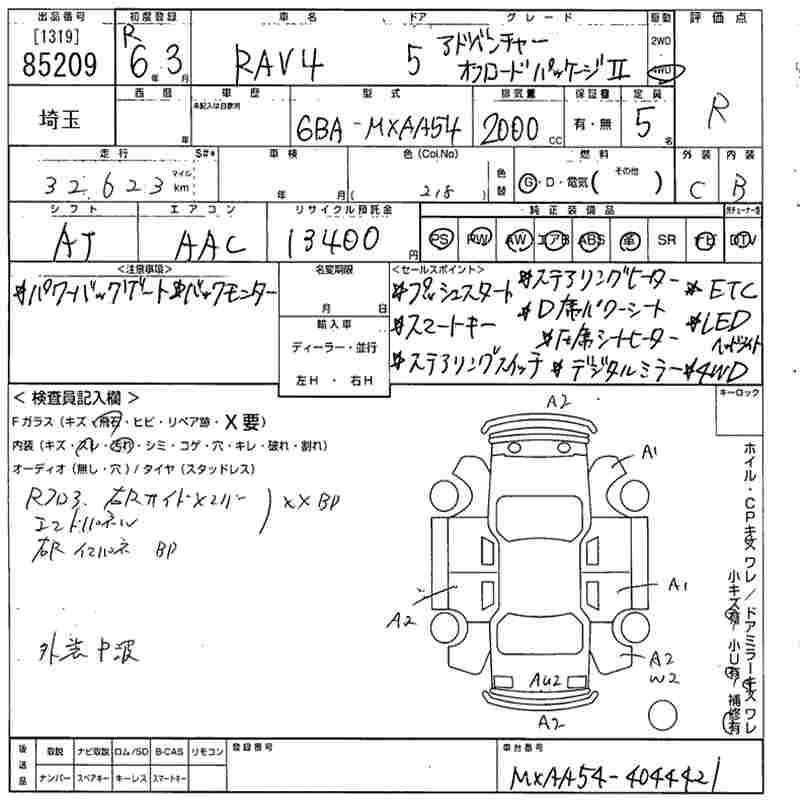 出品番号 初度登録 車名 ドア グレード 駆動 評価点
[1319]
85209
R
6年 3月
RAV4
5
アドベンチャー
オフロードパッケージII
2WD
4WD
R
埼玉
西暦 車歴 型式 排気量 保証書 定員
年
未記入は自家用
6BA-MXAA54
2000 CC
有・無
5名
走行 S#* 車検 色(Col.No) 燃料 外装 内装
32,623
マイル
km
年 月
(218)
色替
G・D・電気(その他 )
C
B
シフト エアコン リサイクル預託金 純正装備品
AT
AAC
13400円
PS PW AW エアB ABS 革 SR ナビ DTV
<注意事項>
*パワーバックゲート*バックモニター
名変期限
月 日
輸入車
ディーラー・並行
左H・右H
<セールスポイント>
*プッシュスタート
*スマートキー
*ステアリングスイッチ
*ステアリングヒーター
*D席パワーシート
*F席シートヒーター
*デジタルミラー
*ETC
*LED
ヘッドライト
*4WD
<検査員記入欄>
Fガラス(キズ・飛石・ヒビ・リペア跡・X要)
内装(キズ・スレ・汚れ・シミ・コゲ・穴・キレ・破れ・割れ)
オーディオ(無し・穴)/タイヤ(スタッドレス)
Rフロア、右Rサイドメンバー
エンドパネル
XX BP
右R インパネ BP
外装中波
キーロック
A2
A1
A1
A2
A2
W2
AU2
A2
ホイル・CPキズ ワレ/ドアミラーキズ ワレ
小キズ有/小U有/補修有
後送品
取説 ナビ取説 ロム/SD B-CAS リモコン
ナンバー スペアキー キーレス スマートキー
登録番号
車台番号
MXAA54-4044421